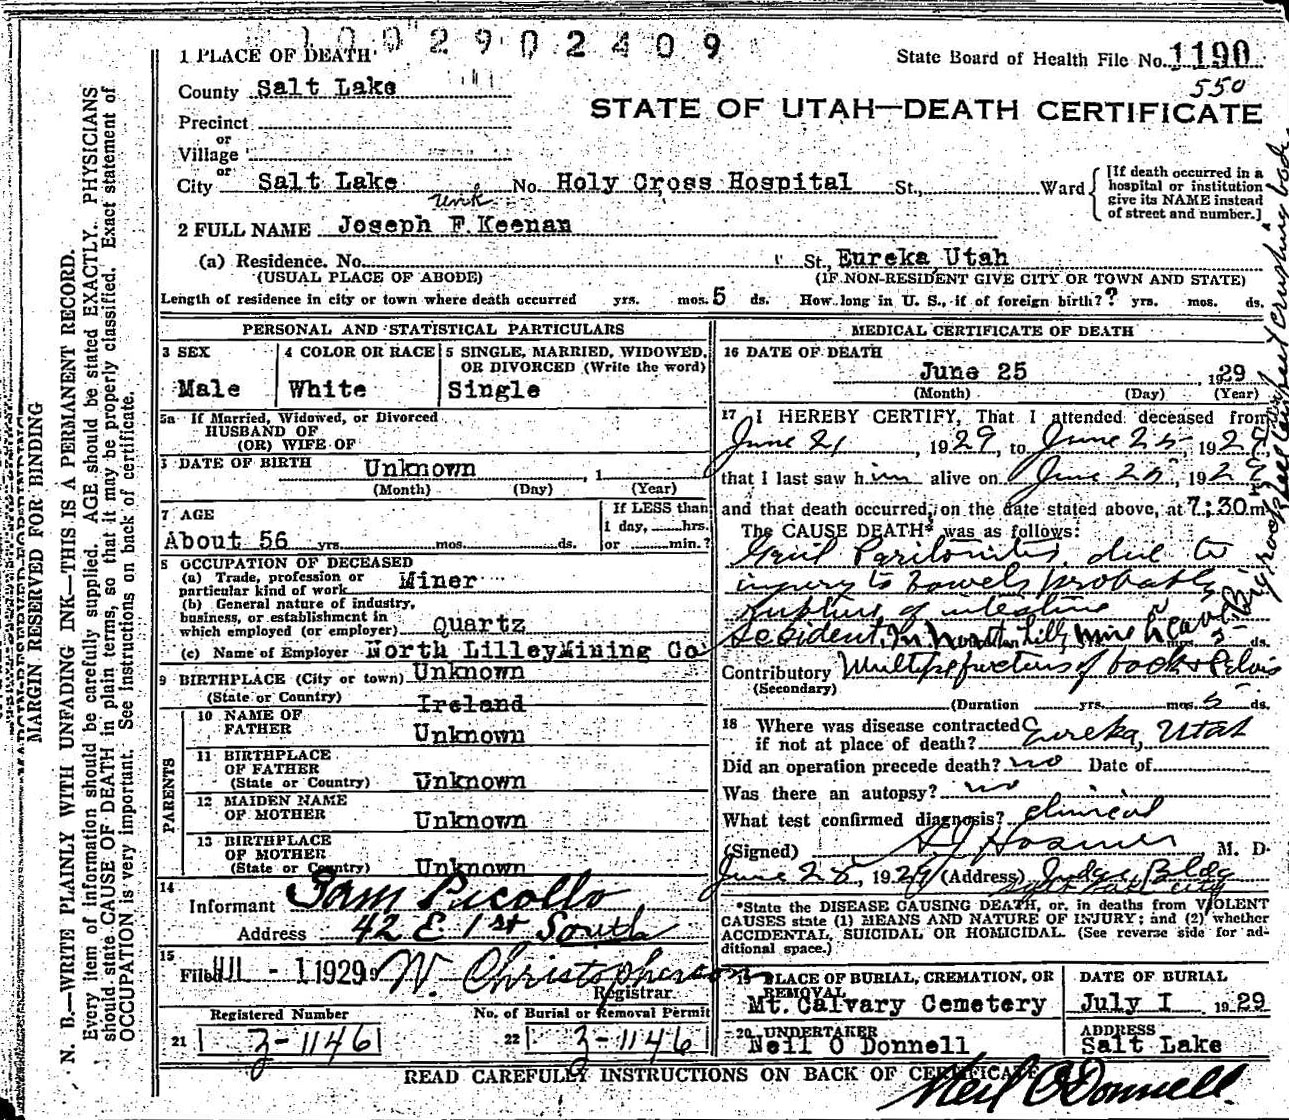 1002902409
1 PLACE OF DEATH
State Board of Health File No. 1190
550
County Salt Lake
STATE OF UTAH—DEATH CERTIFICATE
Precinct
or
Village
or
City Salt Lake No. Holy Cross Hospital St., Ward
[If death occurred in a hospital or institution give its NAME instead of street and number.]
unk
2 FULL NAME Joseph F. Keenan
(a) Residence. No. St., Eureka, Utah
(USUAL PLACE OF ABODE) (IF NON-RESIDENT GIVE CITY OR TOWN AND STATE)
Length of residence in city or town where death occurred yrs. mos. 5 ds. How long in U. S., if of foreign birth? ? yrs. mos. ds.
PERSONAL AND STATISTICAL PARTICULARS
3 SEX
Male
4 COLOR OR RACE
White
5 SINGLE, MARRIED, WIDOWED, OR DIVORCED (Write the word)
Single
5a If Married, Widowed, or Divorced
HUSBAND OF
(OR) WIFE OF
DATE OF BIRTH Unknown , 1
(Month) (Day) (Year)
7 AGE
About 56 yrs. mos. ds.
If LESS than
1 day, hrs.
or min.?
8 OCCUPATION OF DECEASED
(a) Trade, profession or
particular kind of work Miner
(b) General nature of industry,
business, or establishment in
which employed (or employer) Quartz
(c) Name of Employer North LilleyMining Co
9 BIRTHPLACE (City or town) Unknown
(State or Country) Ireland
PARENTS
10 NAME OF
FATHER Unknown
11 BIRTHPLACE
OF FATHER
(State or Country) Unknown
12 MAIDEN NAME
OF MOTHER Unknown
13 BIRTHPLACE
OF MOTHER
(State or Country) Unknown
14
Informant Sam Picollo
Address 42 E 1st South
15
Filed JUL - 1 1929 W. Christopherson
Registrar.
Registered Number
21 3-1146
No. of Burial or Removal Permit
22 3-1146
MEDICAL CERTIFICATE OF DEATH
16 DATE OF DEATH
June 25 , 1929
(Month) (Day) (Year)
17 I HEREBY CERTIFY, That I attended deceased from
June 21, 1929, to June 25, 192
that I last saw him alive on June 25, 192
and that death occurred, on the date stated above, at 7:30 m
The CAUSE DEATH* was as follows:
Peritonitis, due to
injury to bowels probably
rupture of intestine
Accident, In North Lilly mine
ds.
Contributory Multiple of back & Pelvis
(Secondary)
(Duration yrs. mos. 5 ds.
18 Where was disease contracted
if not at place of death? Eureka, Utah
Did an operation precede death? no Date of
Was there an autopsy? no
What test confirmed diagnosis? clinical
(Signed) Hosmer, M. D.
June 25, 1929 (Address) Judge Bldg
Salt Lake City
*State the DISEASE CAUSING DEATH, or, in deaths from VIOLENT
CAUSES state (1) MEANS AND NATURE OF INJURY; and (2) whether
ACCIDENTAL, SUICIDAL OR HOMICIDAL. (See reverse side for ad-
ditional space.)
19 PLACE OF BURIAL, CREMATION, OR
REMOVAL
Mt. Calvary Cemetery
DATE OF BURIAL
July I 1929
20 UNDERTAKER
Neil O Donnell
ADDRESS
Salt Lake
READ CAREFULLY INSTRUCTIONS ON BACK OF CERTIFICATE
Neil O'Donnell.
MARGIN RESERVED FOR BINDING
N. B.—WRITE PLAINLY WITH UNFADING INK—THIS IS A PERMANENT RECORD.
Every item of information should be carefully supplied. AGE should be stated EXACTLY. PHYSICIANS
should state CAUSE OF DEATH in plain terms, so that it may be properly classified. Exact statement of
OCCUPATION is very important. See instructions on back of certificate.